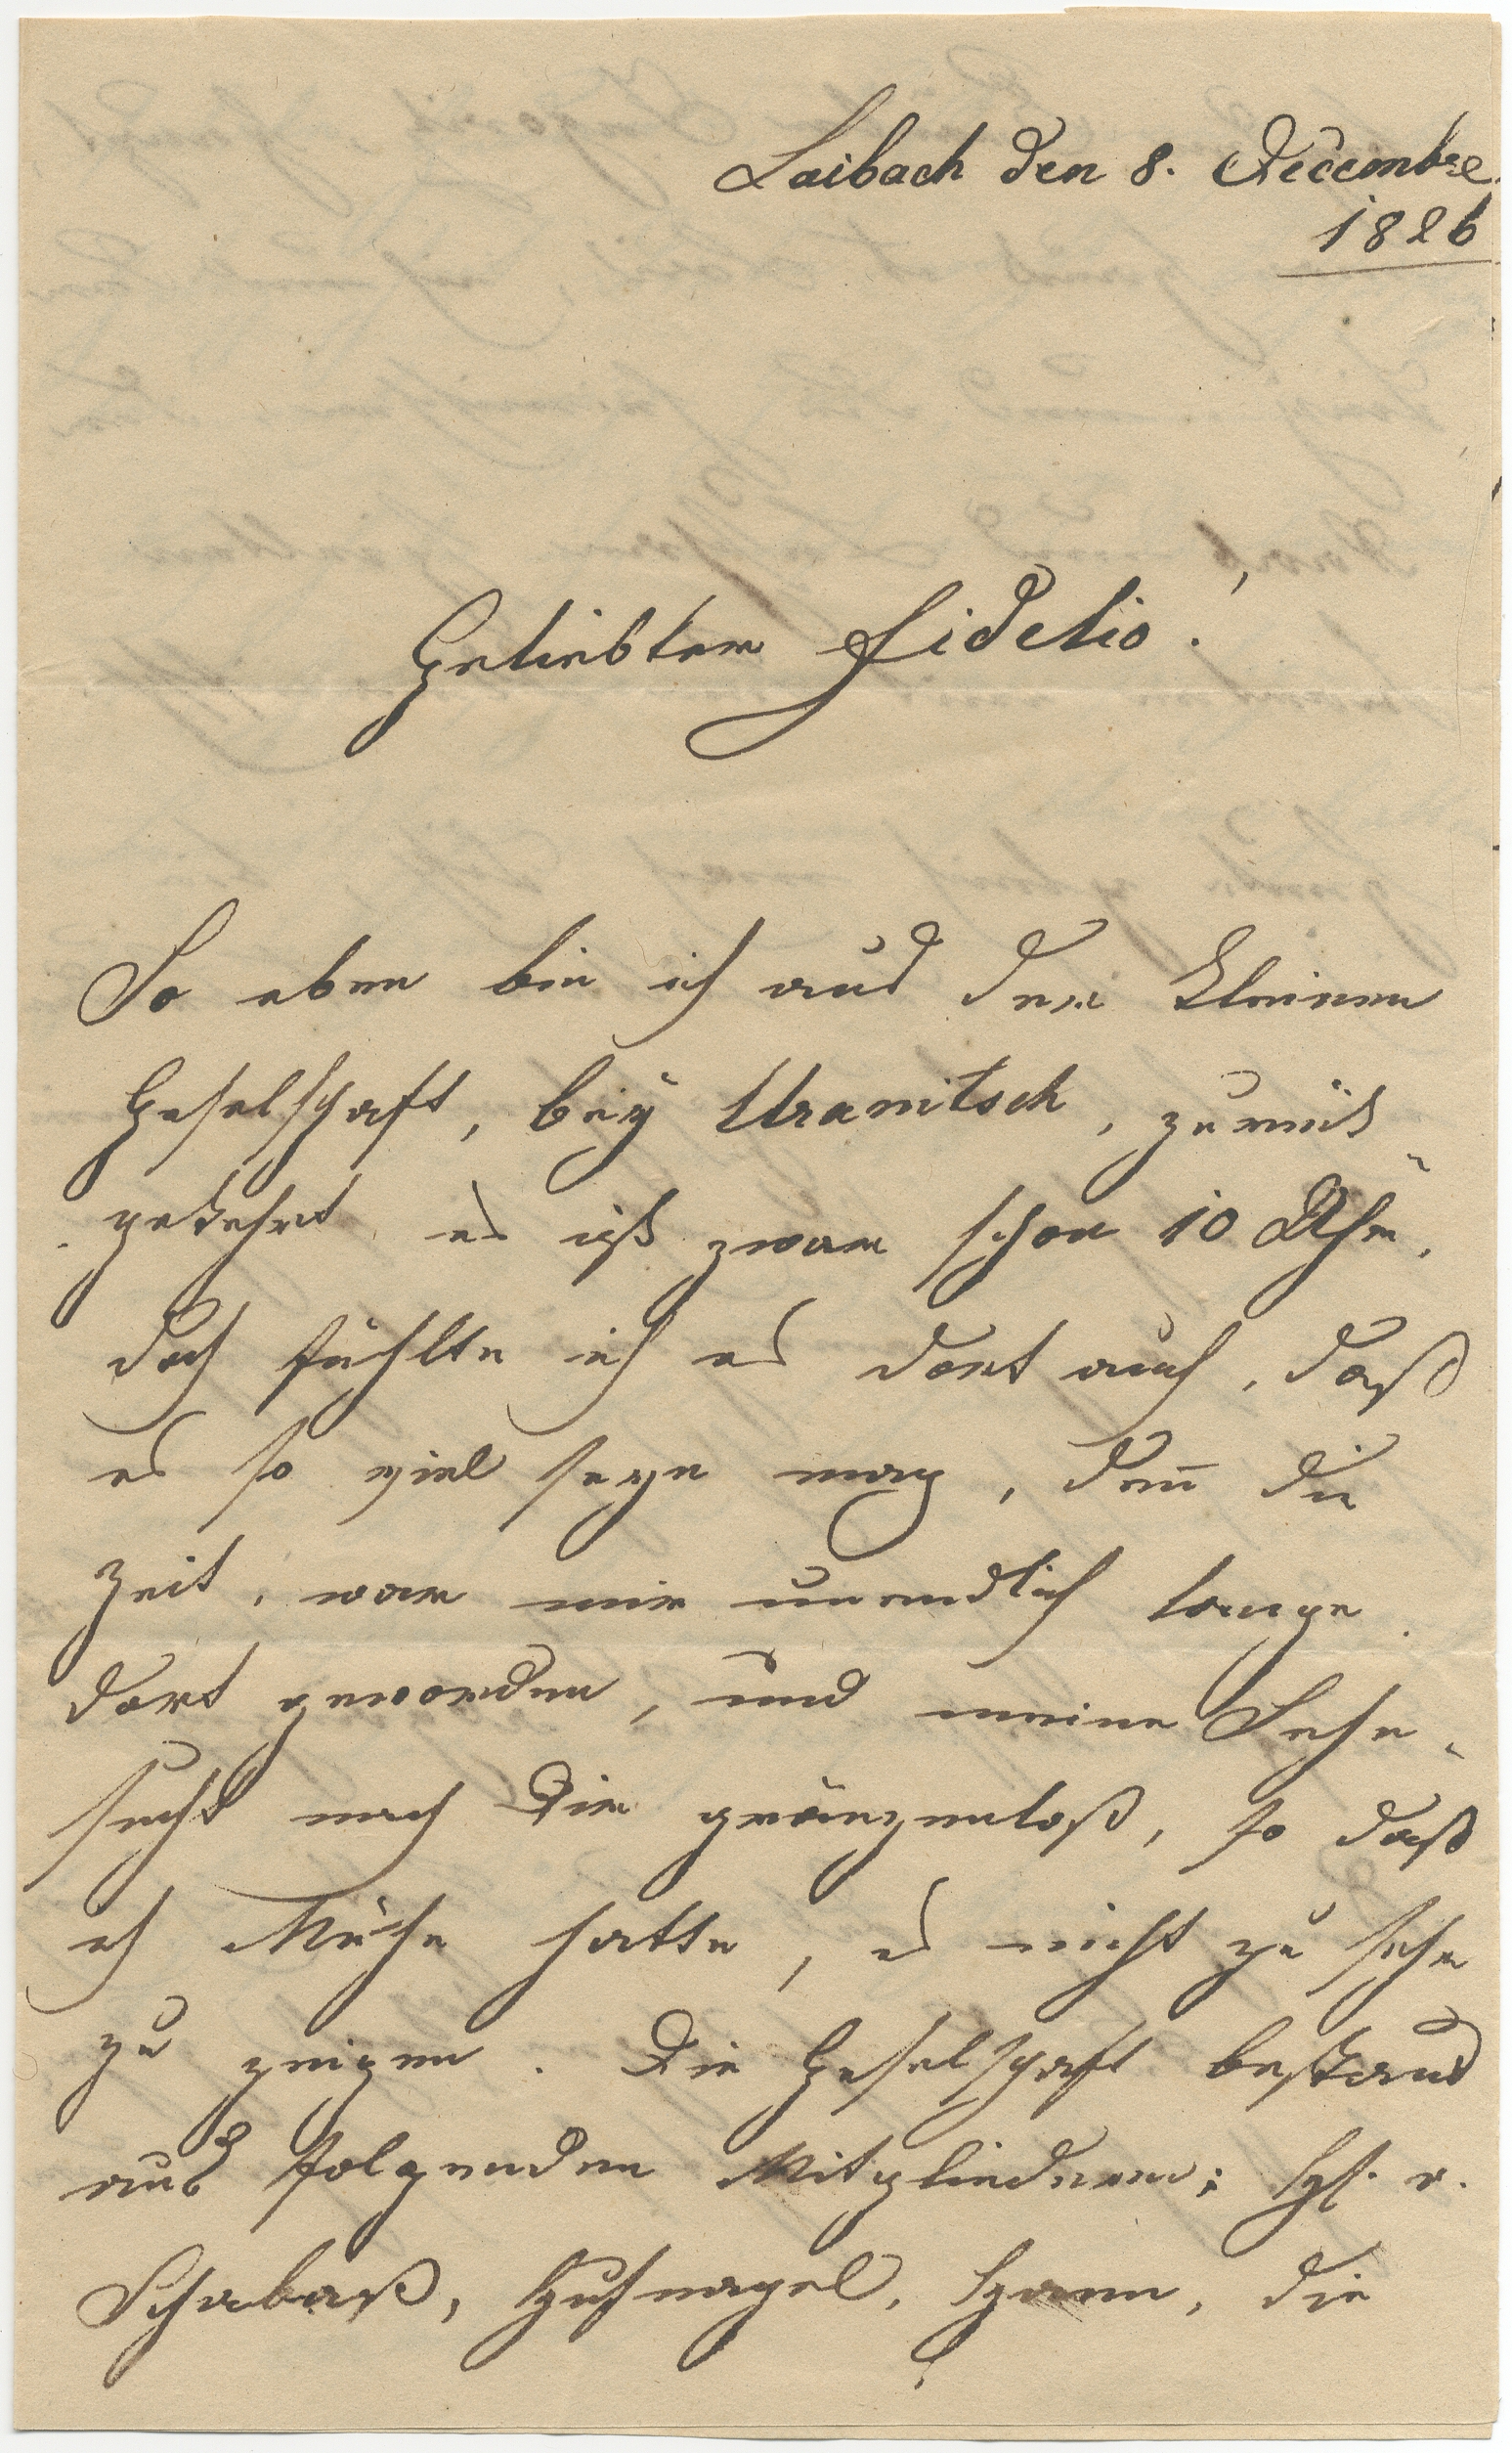 Laibach den 8. Decembre
1826
Geliebter Fidelio!
So eben bin ich aus der kleinen
Geselschaft, beÿ Uranitsch, zurück
gekehrt, es ist zwar schon 10 Uhr,
doch fühlte ich es dort auch, daß
es so viel seyn mag, den̅ die
Zeit, war mir unendlich lange
dort geworden, und meine Sehn-
sucht nach Dir gränzenloß, so daß
ich Mühe hatte, es nicht zu sehr
zu zeigen. Die Geselschaft bestand
aus folgenden Mitgliedern; v.
Schabaß, Hufnagel, die